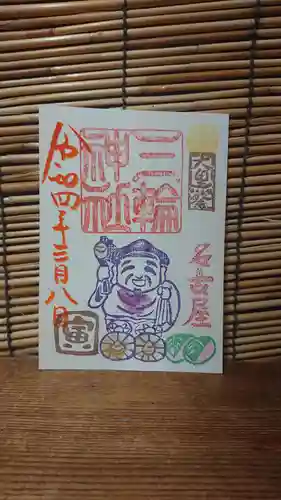 大黒祭
三輪
神社
名古屋
令和四年三月八日
寅